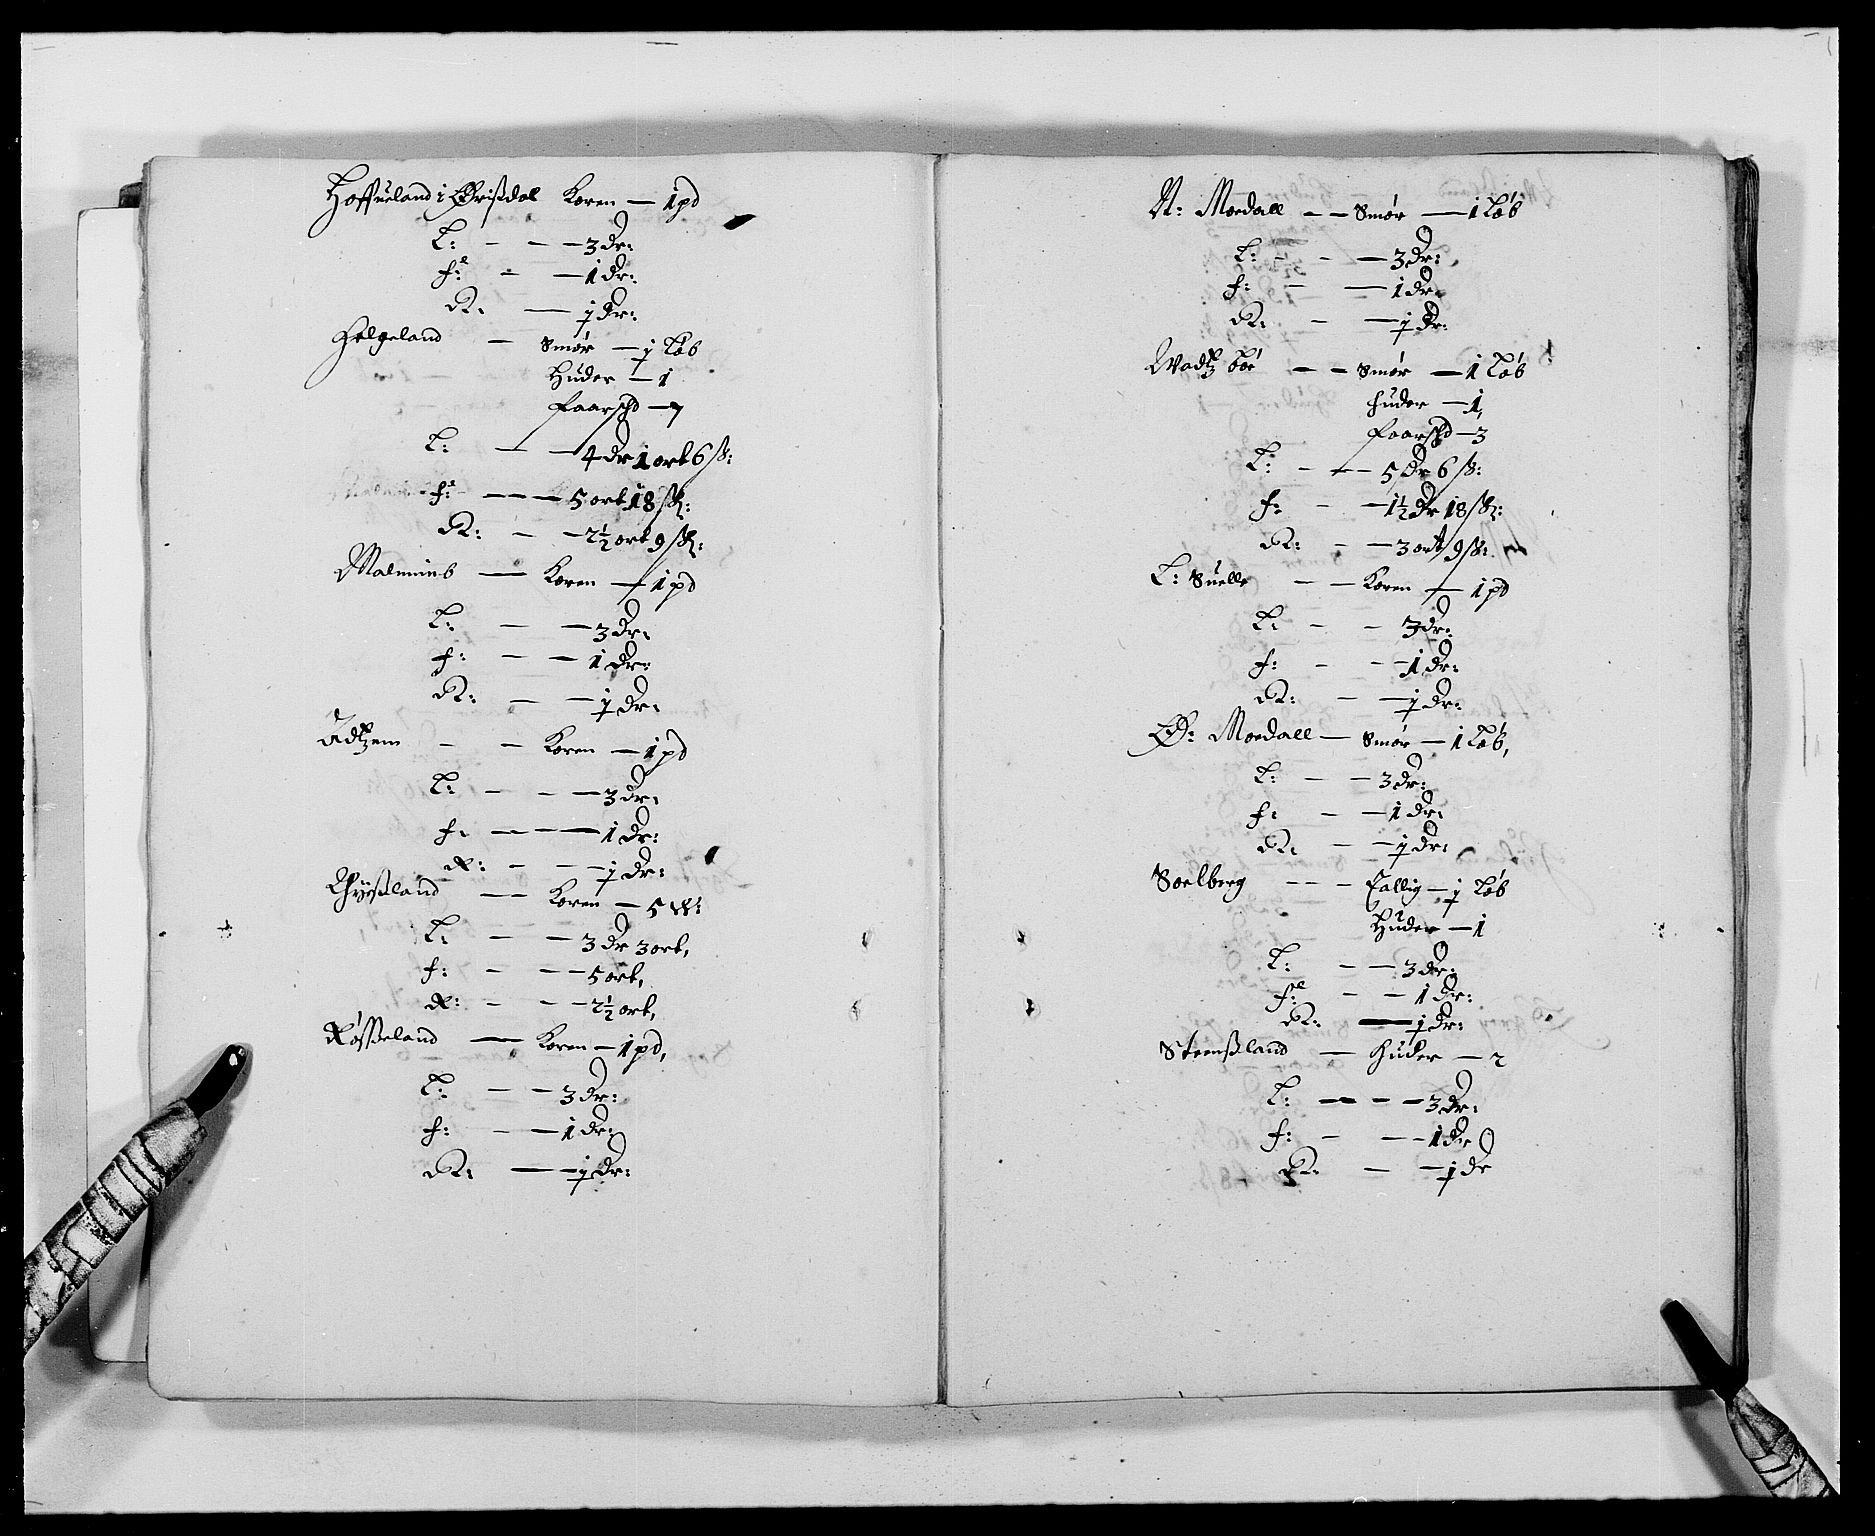 Hoffueland i Ørißdal Koren — 1 pd
L: - - — 3 dr:
f: - — 1 dr:
R: — ½ dr:
Helgeland - Smør — ½ Løb
Huder — 1
Faarschd — 7
L: — — 4 dr 1 ort 6 ß:
f: — — — 5 ort 18 ß:
R: - — 2½ ort 9 ß:
Malmind — Koren — 1 pd
L: - — 3 dr:
f: - — 1 dr:
R: - — ½ dr:
Koren — 1 pd
L: - - — 3 dr:
f: — — — 1 dr:
R: - - — ½ dr:
Koren — 5
L: - — 3 dr 3 ort,
f: - - — 5 ort,
R: - - — 2½ ort,
Røßeland — Koren — 1 pd,
L: - — 3 dr:
f: - — 1 dr:
R: — — ½ dr:
N: Moedall - - Smør — 1 Løb
L: - - — 3 dr:
f: - — 1 dr:
R: - — ½ dr:
- - Smør — 1 Løb
huder — 1,
Faarschd — 3
L: - - — 5 dr 6 ß:
f: - — 1½ dr 18 ß:
R: - — 3 ort 9 ß:
L: Suelle - - Koren — 1 pd
L: - - 3 dr:
f: - - 1 dr:
R: - — ½ dr:
Ø: Moedall — Smør — 1 Løb,
L: - — 3 dr:
f: - — 1 dr:
R: - — ½ dr:
Soelberg - - - Tallig — ½ Løb
Huder — 1
L: - — 3 dr:
f: - - 1 dr:
R: — ½ dr:
Steenßland — Huder — 2
L: — - — 3 dr:
f: - - - 1 dr
R: - — ½ dr